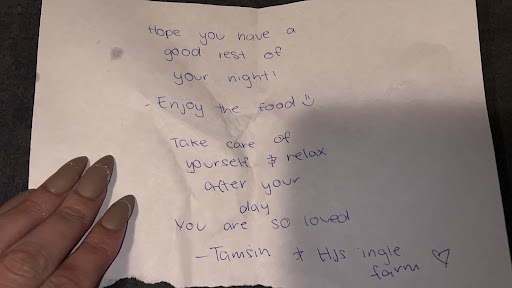 Hope you have a
good rest of
your night!
- Enjoy the food :)
Take care of
yourself & relax
after your
day
You are so loved
- Tamsin & HJs ingle
farm ♡